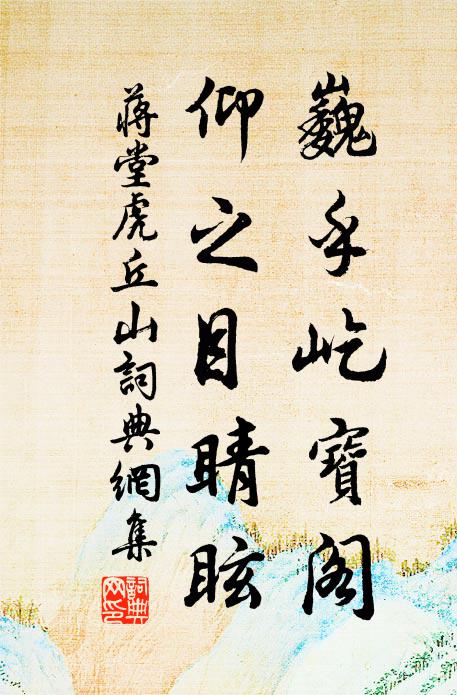 巍乎屹寶阁
仰之目睛眩
蒋堂虎丘山詞典網集
詞典